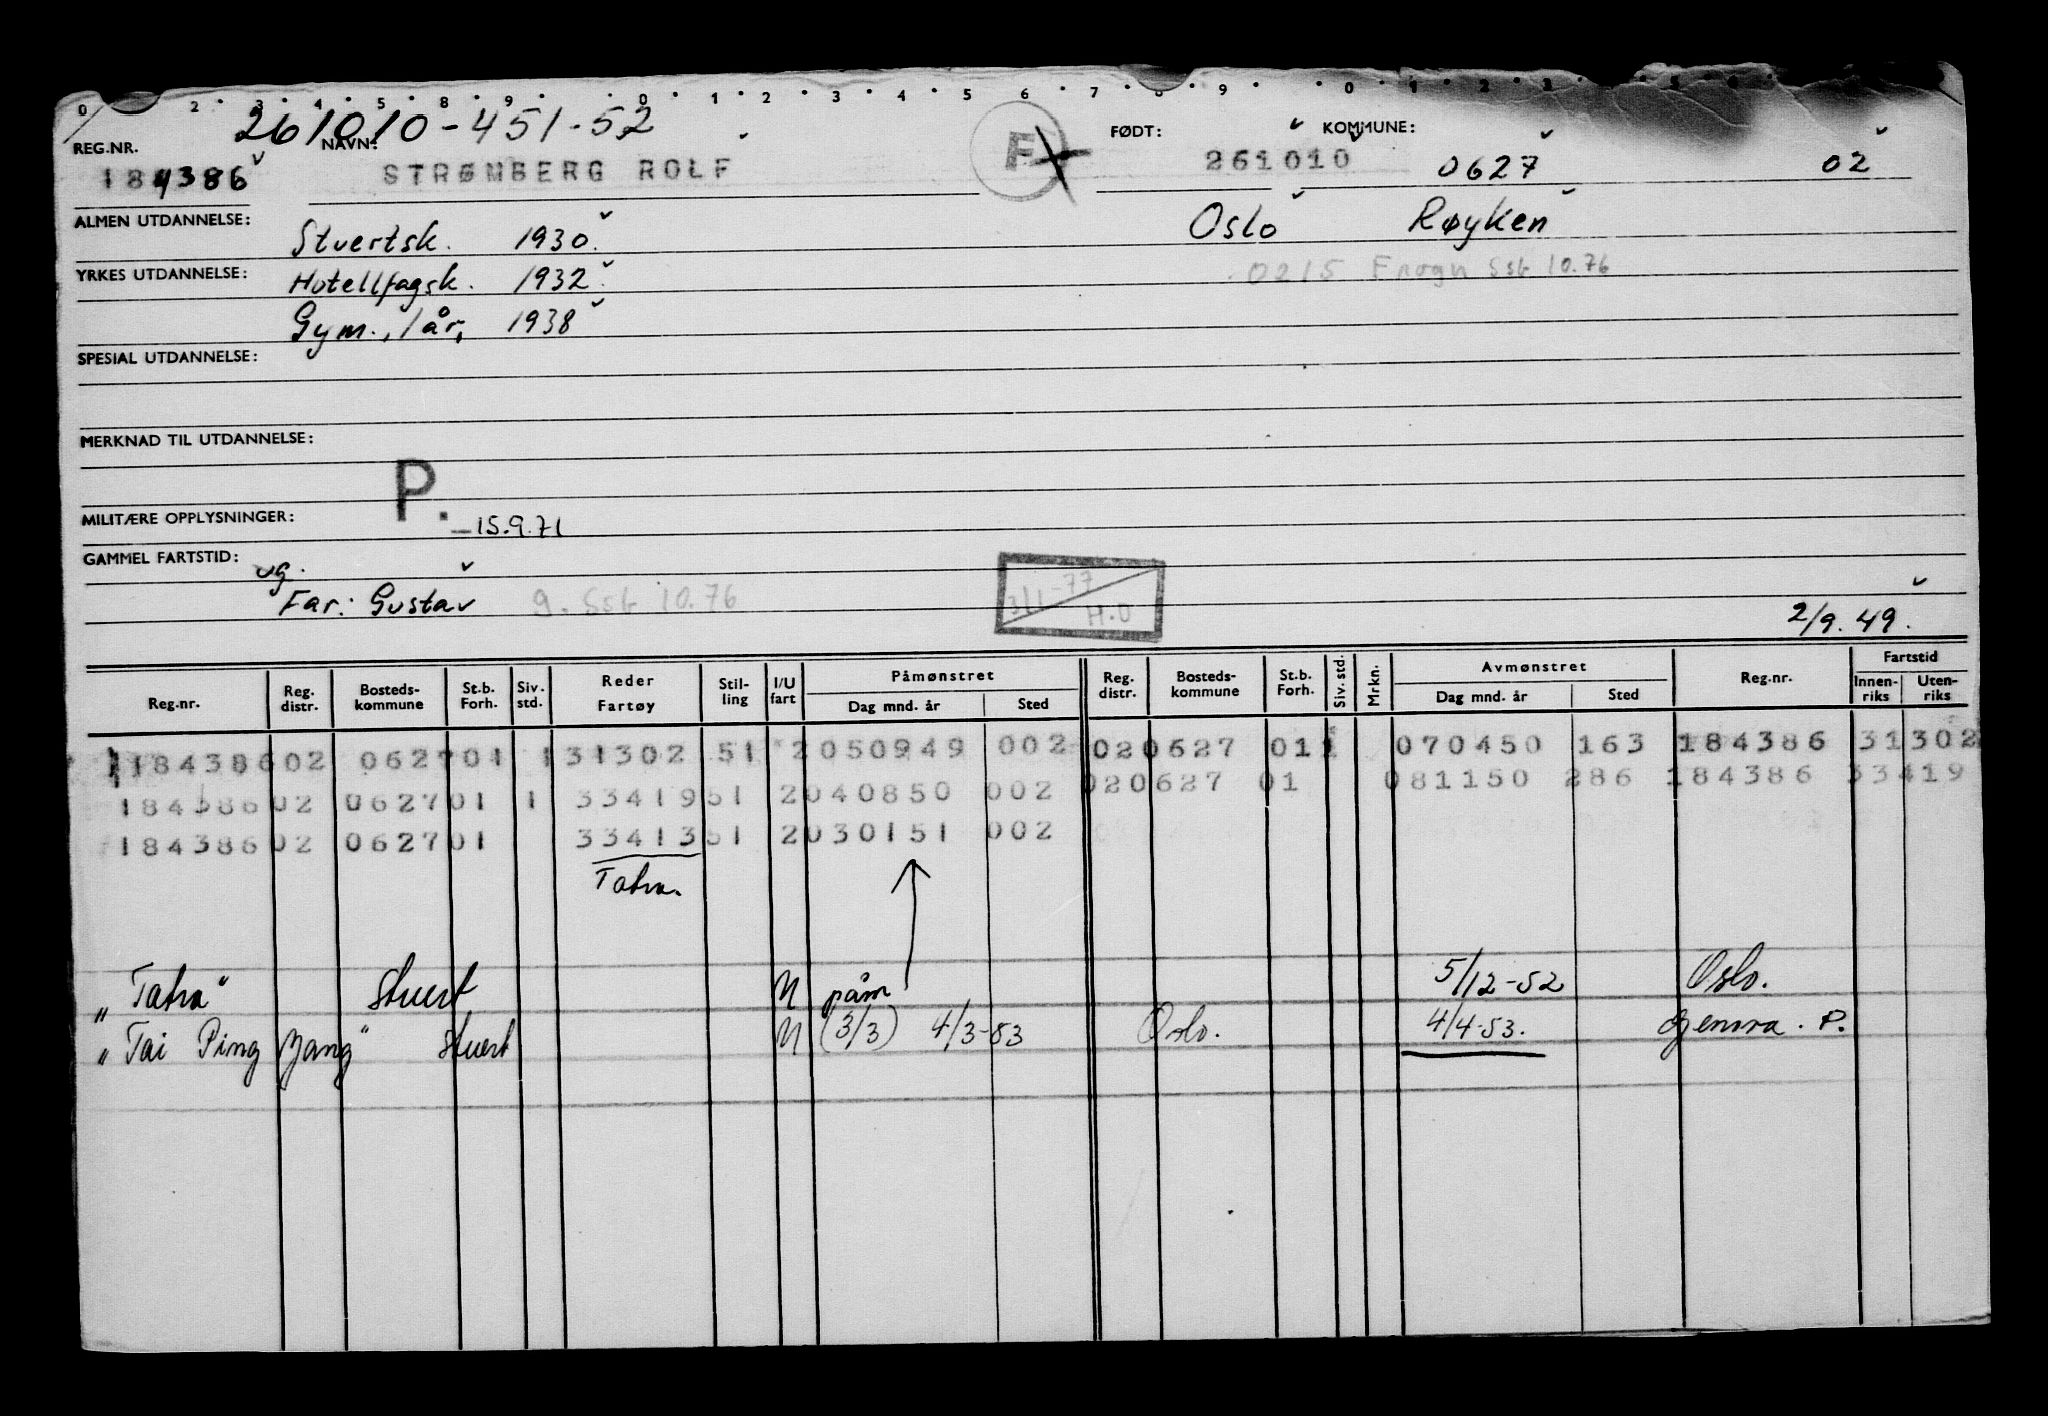 0 2 3 4 5 8 9 0 1 2 3 4 5 6 7 8 9 0 1 2 3
261010-451-52
REG.NR. NAVN: F FØDT: KOMMUNE:
184386 STRØMBERG ROLF 261010 0627 02
ALMEN UTDANNELSE: Stuertsk. 1930. Oslo Røyken
YRKES UTDANNELSE: Hotellfagsk. 1932. 0215 Frogn Ssb 10.76
Gym., 1 år, 1938
SPESIAL UTDANNELSE:
MERKNAD TIL UTDANNELSE:
P.
MILITÆRE OPPLYSNINGER: 15.9.71
GAMMEL FARTSTID:
ug.
Far: Gustav g. Ssb 10.76 3/1-77 H.O 2/9.49.
Reg.nr. Reg. distr. Bosteds-kommune St.b. Forh. Siv. std. Reder Fartøy Stil-ling I/U fart Påmønstret Dag mnd. år Sted Reg. distr. Bosteds-kommune St.b. Forh. Siv. std. Mrkn. Avmønstret Dag mnd. år Sted Reg.nr. Fartstid Innen-riks Uten-riks
184386 02 0627 01 1 31302 51 2 050949 002 02 0627 01 1 070450 163 184386 31302
184386 02 0627 01 1 33419 51 2 040850 002 02 0627 01 081150 286 184386 33419
184386 02 0627 01 33413 51 2 030151 002
Tatra.
"Tatra" Stuert U påm 5/12-52 Oslo.
"Tai Ping Yang" Stuert U (3/3) 4/3-53 Oslo. 4/4-53. Genova. P.